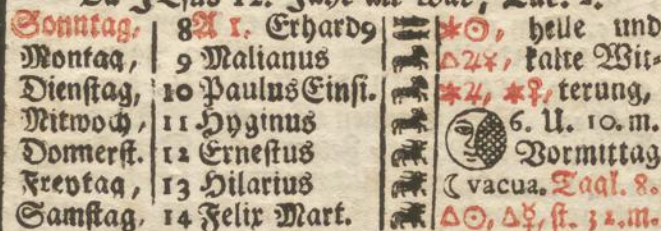 Da JEsus 12. Jahr alt war, Luc. 2.
Sonntag, 8 A 1. Erhard9 ⚹☉, helle und
Montag, 9 Malianus △♃⚹, kalte Wit-
Dienstag, 10 Paulus Einsi. ⚹♃, ⚹♀, terung,
Mitwoch, 11 Hyginus 6. U. 10. m.
Donnerst. 12 Ernestus Vormittag
Freytag, 13 Hilarius ☾ vacua. Tagl. 8.
Samstag, 14 Felix Mart. △☉, △☿, st. 32. m.